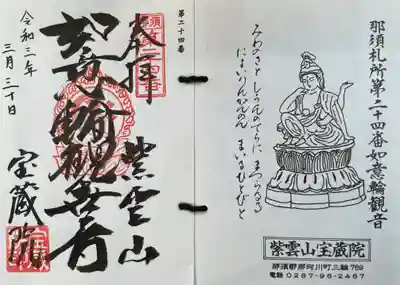 那須札所第二十四番如意輪観音
みわのさと しうんのてらに まつらるる
にょいりんかんのん まいるひとびと
紫雲山宝蔵院
那須郡那珂川町三輪769
電話0287-96-2467
第二十四番
奉拝 紫雲山
如意輪観世音
宝蔵院
令和三年
三月三十日